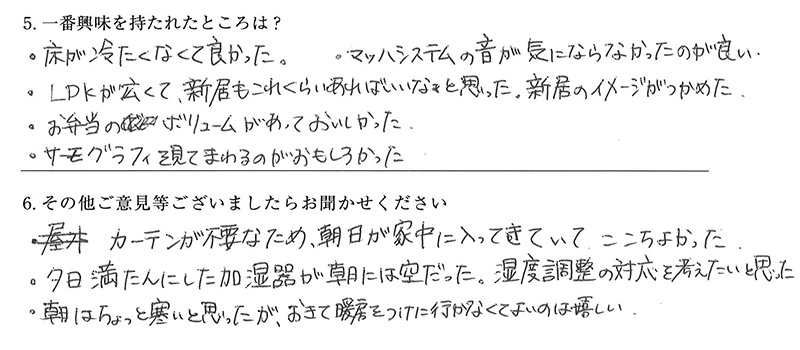 5. 一番興味を持たれたところは？
・床が冷たくなくて良かった。 ・マッハシステムの音が気にならなかったのが良い.
・LDKが広くて、新居もこれくらいあればいいなぁと思った。新居のイメージがつかめた.
・お弁当のボリュームがあっておいしかった.
・サーモグラフィを見てまわるのがおもしろかった
6. その他ご意見等ございましたらお聞かせください
・カーテンが不要なため、朝日が家中に入ってきていて ここちよかった.
・夕日満たんにした加湿器が朝には空だった。湿度調整の対応を考えたいと思った
・朝はちょっと寒いと思ったが、おきて暖房をつけに行かなくてよいのは嬉しい.